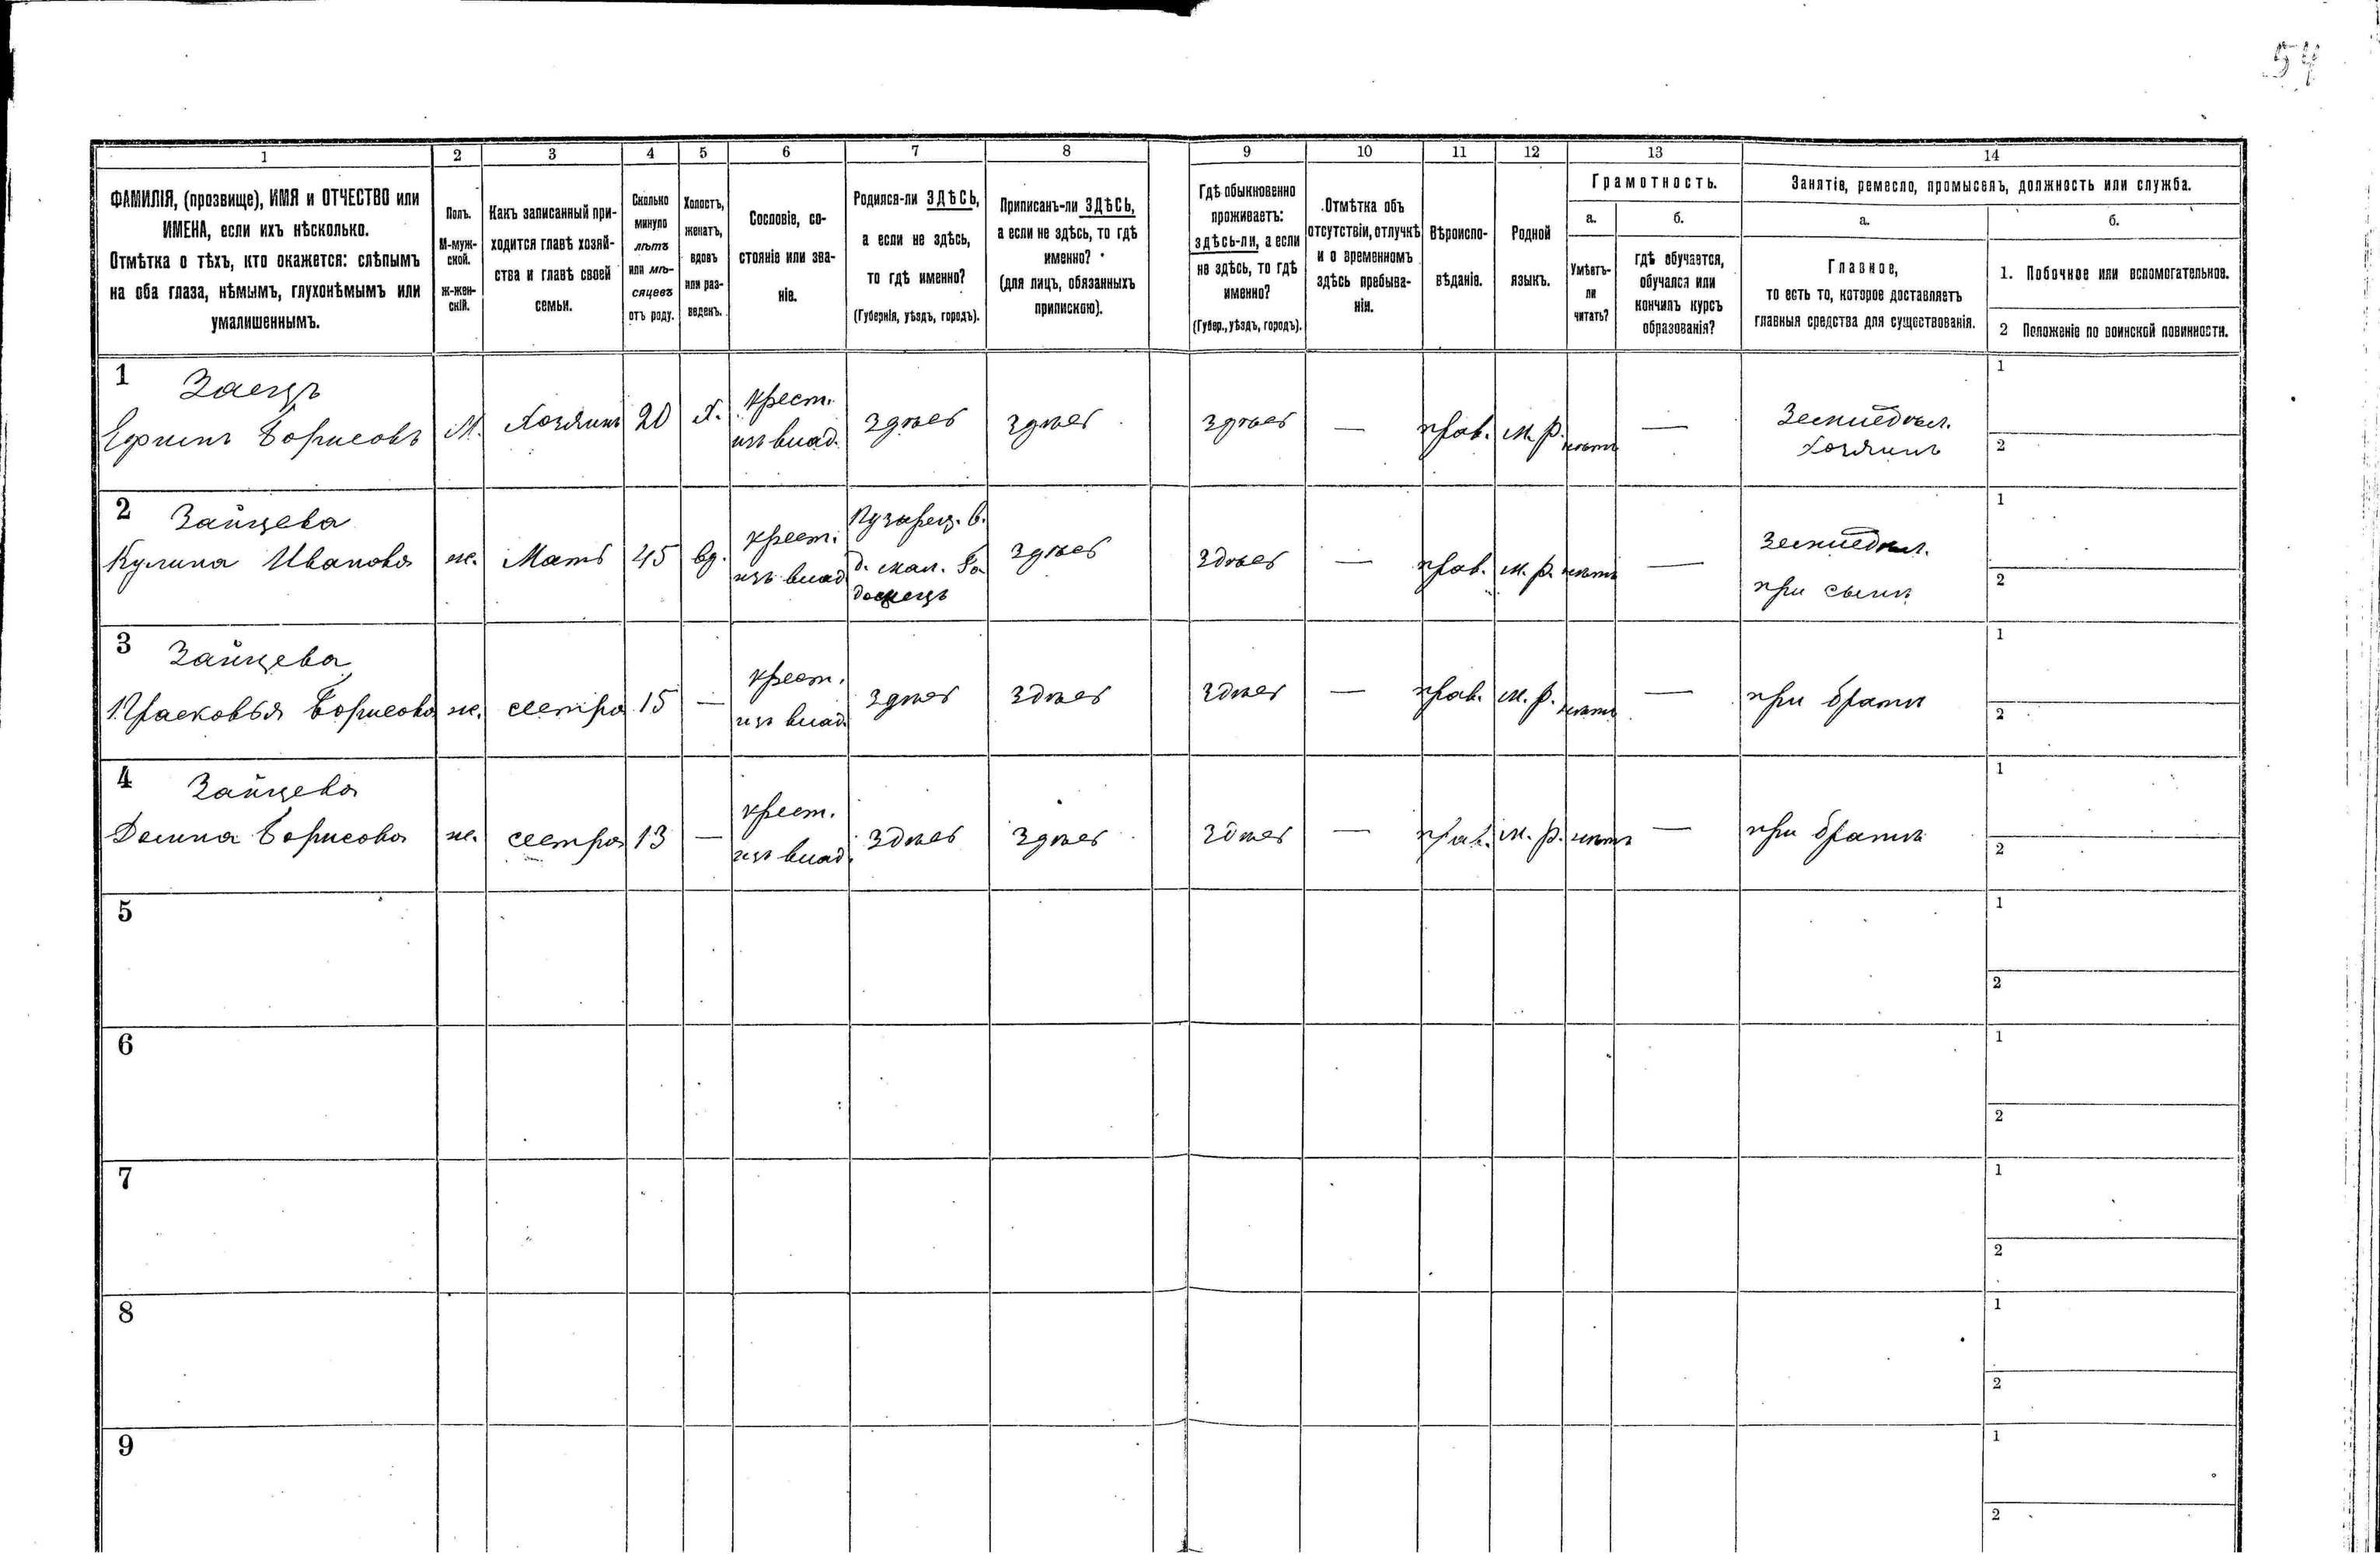 54
1 2 3 4 5 6 7 8 9 10 11 12 13 14
ФАМИЛІЯ, (прозвище), ИМЯ и ОТЧЕСТВО или
ИМЕНА, если ихъ нѣсколько.
Отмѣтка о тѣхъ, кто окажется: слѣпымъ
на оба глаза, нѣмымъ, глухонѣмымъ или
умалишеннымъ.
Полъ.
М-муж-
ской.
ж-жен-
скій.
Какъ записанный при-
ходится главѣ хозяй-
ства и главѣ своей
семьи.
Сколько
минуло
лѣтъ
или мѣ-
сяцевъ
отъ роду.
Холостъ,
женатъ,
вдовъ
или раз-
веденъ.
Сословіе, со-
стояніе или зва-
ніе.
Родился-ли ЗДѢСЬ,
а если не здѣсь,
то гдѣ именно?
(Губернія, уѣздъ, городъ).
Приписанъ-ли ЗДѢСЬ,
а если не здѣсь, то гдѣ
именно?
(для лицъ, обязанныхъ
припискою).
Гдѣ обыкновенно
проживаетъ:
здѣсь-ли, а если
не здѣсь, то гдѣ
именно?
(Губер., уѣздъ, городъ).
Отмѣтка объ
отсутствіи, отлучкѣ
и о временномъ
здѣсь пребыва-
ніи.
Вѣроиспо-
вѣданіе.
Родной
языкъ.
Грамотность.
а.
Умѣетъ-
ли
читать?
б.
гдѣ обучается,
обучался или
кончилъ курсъ
образованія?
Занятіе, ремесло, промыселъ, должность или служба.
а.
Главное,
то есть то, которое доставляетъ
главныя средства для существованія.
б.
1. Побочное или вспомогательное.
2 Положеніе по воинской повинности.
1 Заецъ
Ефимъ Борисовъ М. Хозяинъ 20 Х. крест. изъ влад. здѣсь здѣсь здѣсь — прав. м. р. нѣтъ — Земледѣл. Хозяинъ 1 2
2 Зайцева
Кулина Иванова ж. Мать 45 вд. крест. изъ влад. д. мал. здѣсь здѣсь — прав. м. р. нѣтъ — Земледѣл. при сынѣ 1 2
3 Зайцева
Прасковья Борисова ж. сестра 15 — крест. изъ влад. здѣсь здѣсь здѣсь — прав. м. р. нѣтъ — при братѣ 1 2
4 Зайцева
Домна Борисова ж. сестра 13 — крест. изъ влад. здѣсь здѣсь здѣсь — прав. м. р. нѣтъ — при братѣ 1 2
5 1 2
6 1 2
7 1 2
8 1 2
9 1 2